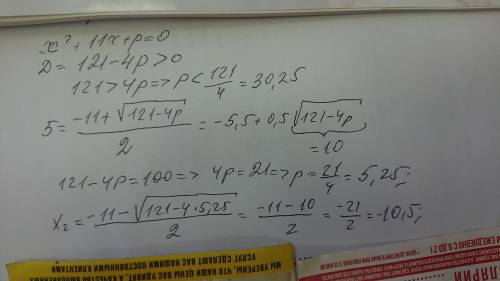 x² + 11x + p = 0
D = 121 - 4p > 0
121 > 4p => p < 121/4 = 30,25
5 = (-11 + √(121-4p))/2 = -5,5 + 0,5 √(121-4p)
= 10
121 - 4p = 100 => 4p = 21 => p = 21/4 = 5,25;
x₂ = (-11 - √(121-4·5,25))/2 = (-11-10)/2 = -21/2 = -10,5;
УСЛУГ ДЕЛАЮТ ВАС НАШИМИ ПОСТОЯННЫМИ КЛИЕНТАМИ
МЫ УВЕРЕНЫ, ЧТО НАШИ ЦЕНЫ ВАС УДИВЯТ, А КАЧЕСТВО
ЕЖЕДНЕВНО С 8 ДО 21